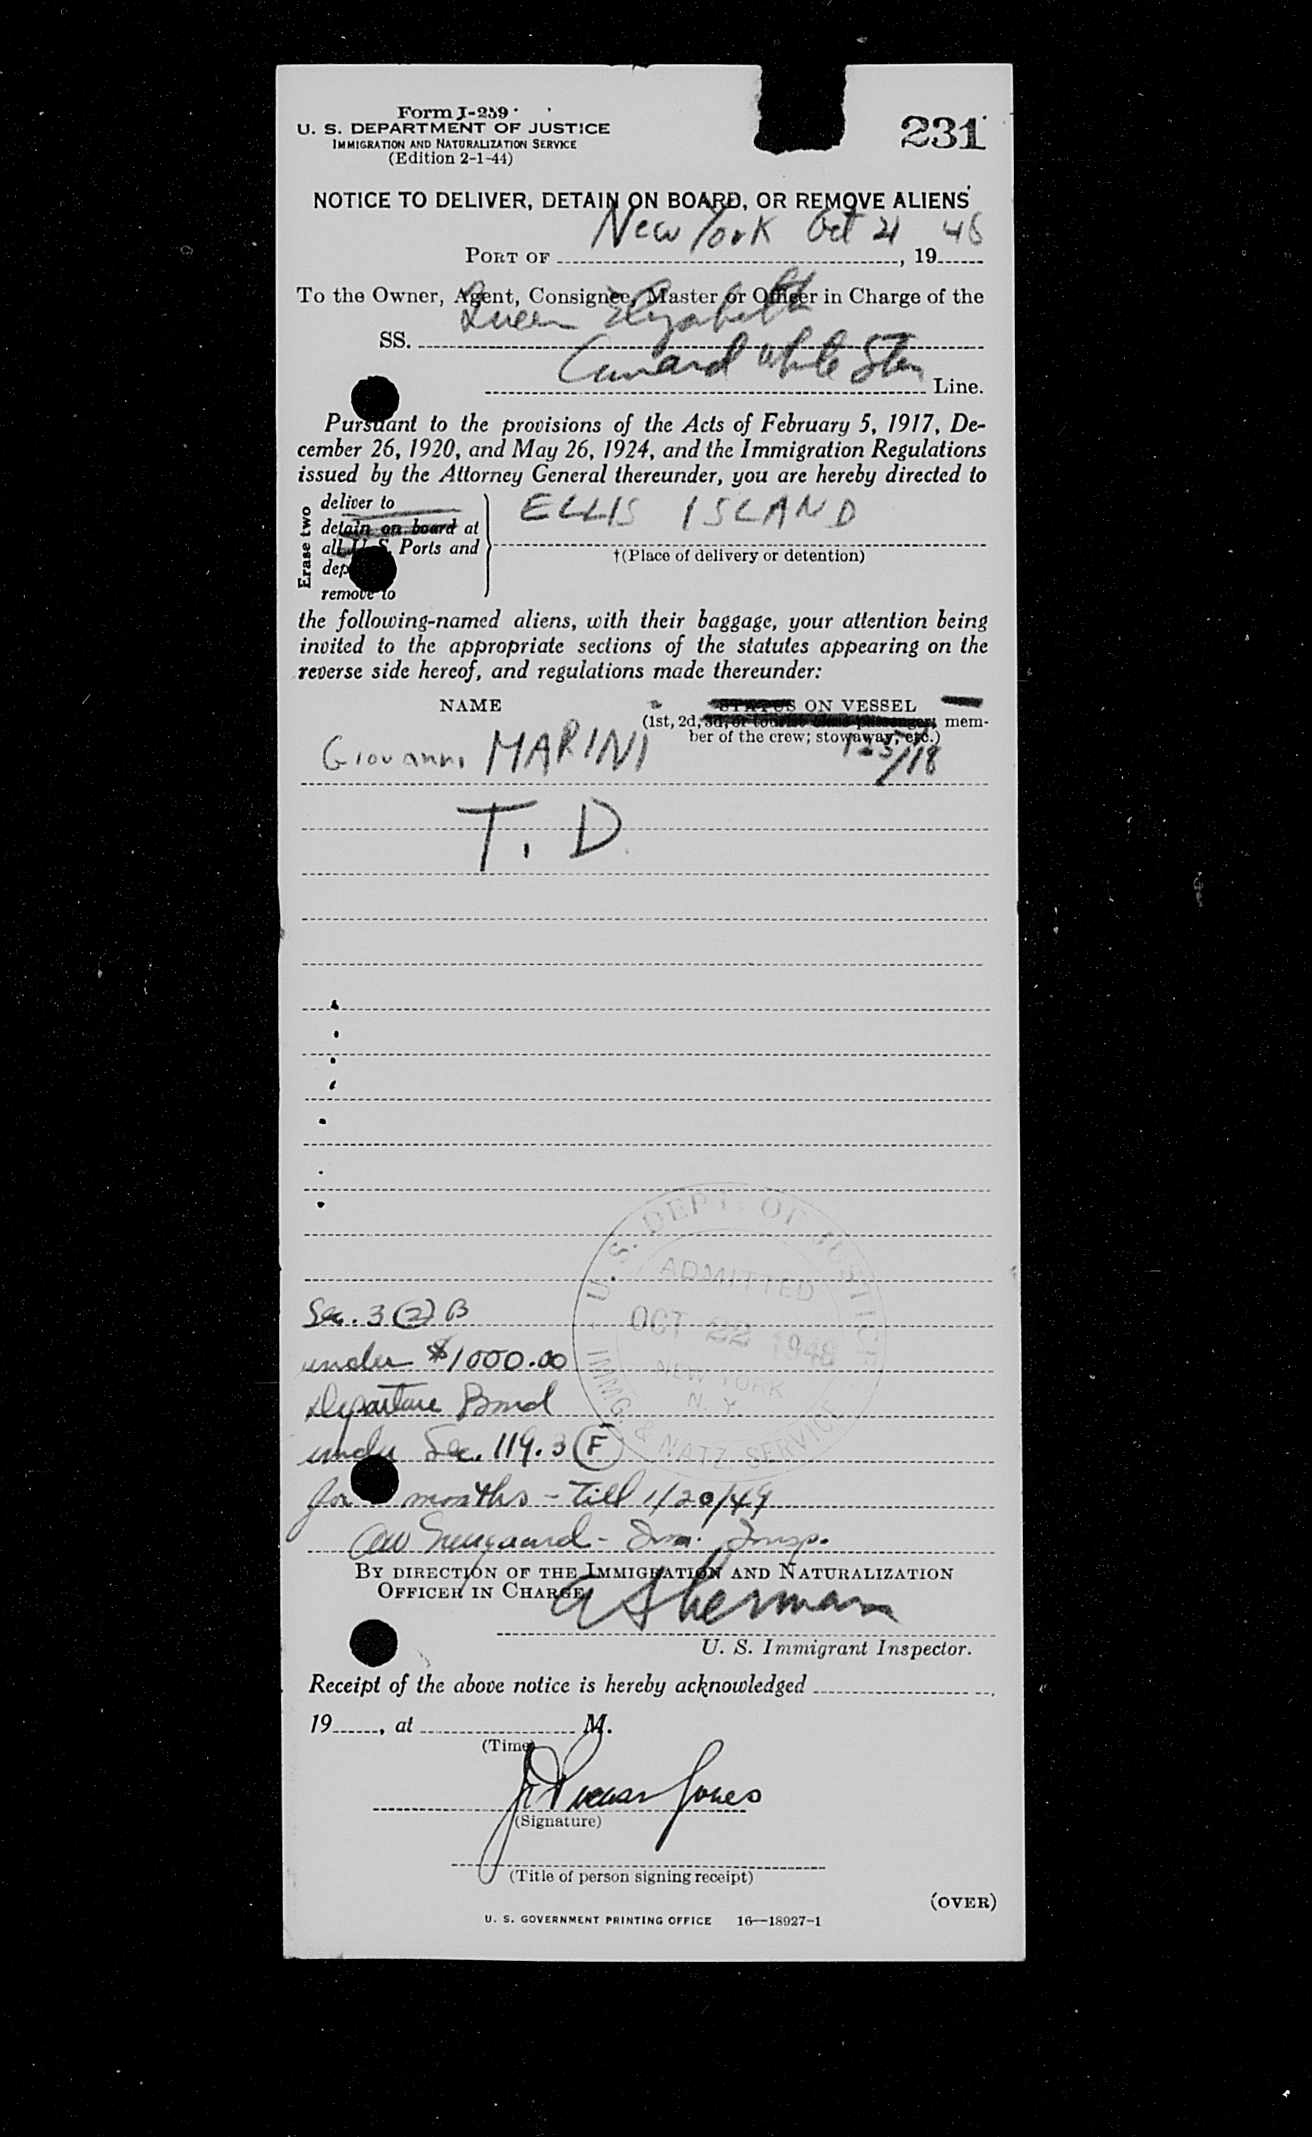 Form I-259
U. S. DEPARTMENT OF JUSTICE
IMMIGRATION AND NATURALIZATION SERVICE
(Edition 2-1-44)
231
NOTICE TO DELIVER, DETAIN ON BOARD, OR REMOVE ALIENS
PORT OF New York Oct 21, 1948
To the Owner, Agent, Consignee, Master or Officer in Charge of the
SS. Queen Elizabeth
Cunard White Star Line.
Pursuant to the provisions of the Acts of February 5, 1917, De-
cember 26, 1920, and May 26, 1924, and the Immigration Regulations
issued by the Attorney General thereunder, you are hereby directed to
Erase two
deliver to
detain on board at
all U. S. Ports and
remove to
ELLIS ISLAND
†(Place of delivery or detention)
the following-named aliens, with their baggage, your attention being
invited to the appropriate sections of the statutes appearing on the
reverse side hereof, and regulations made thereunder:
NAME
STATUS ON VESSEL
(1st, 2d, 3d, or tourist class passenger; mem-
ber of the crew; stowaway, etc.)
Giovanni MARINI /18
T. D.
U. S. DEPT. OF JUSTICE
ADMITTED
OCT 22 1948
NEW YORK
N. Y.
IMMG. & NATZ. SERVICE
Sec. 3 (2) B
under $1000.00
Departure Bond
under Sec. 119.3 (F)
for months - till 1/20/49
Imm. Insp.
BY DIRECTION OF THE IMMIGRATION AND NATURALIZATION
OFFICER IN CHARGE
A Sherman
U. S. Immigrant Inspector.
Receipt of the above notice is hereby acknowledged
19, at M.
(Time)
Jones
(Signature)
(Title of person signing receipt)
(OVER)
U. S. GOVERNMENT PRINTING OFFICE 16—18927-1